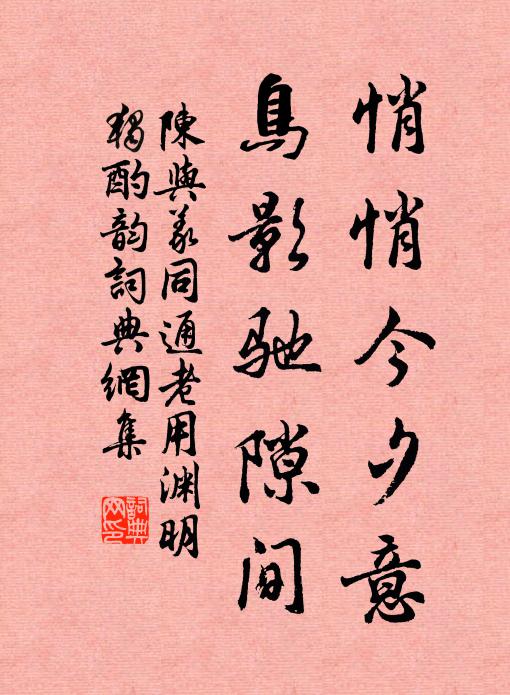 悄悄今夕意
鳥影馳隙间
陳與義同通老用渊明
獨酌韵詞典網集
詞典网印